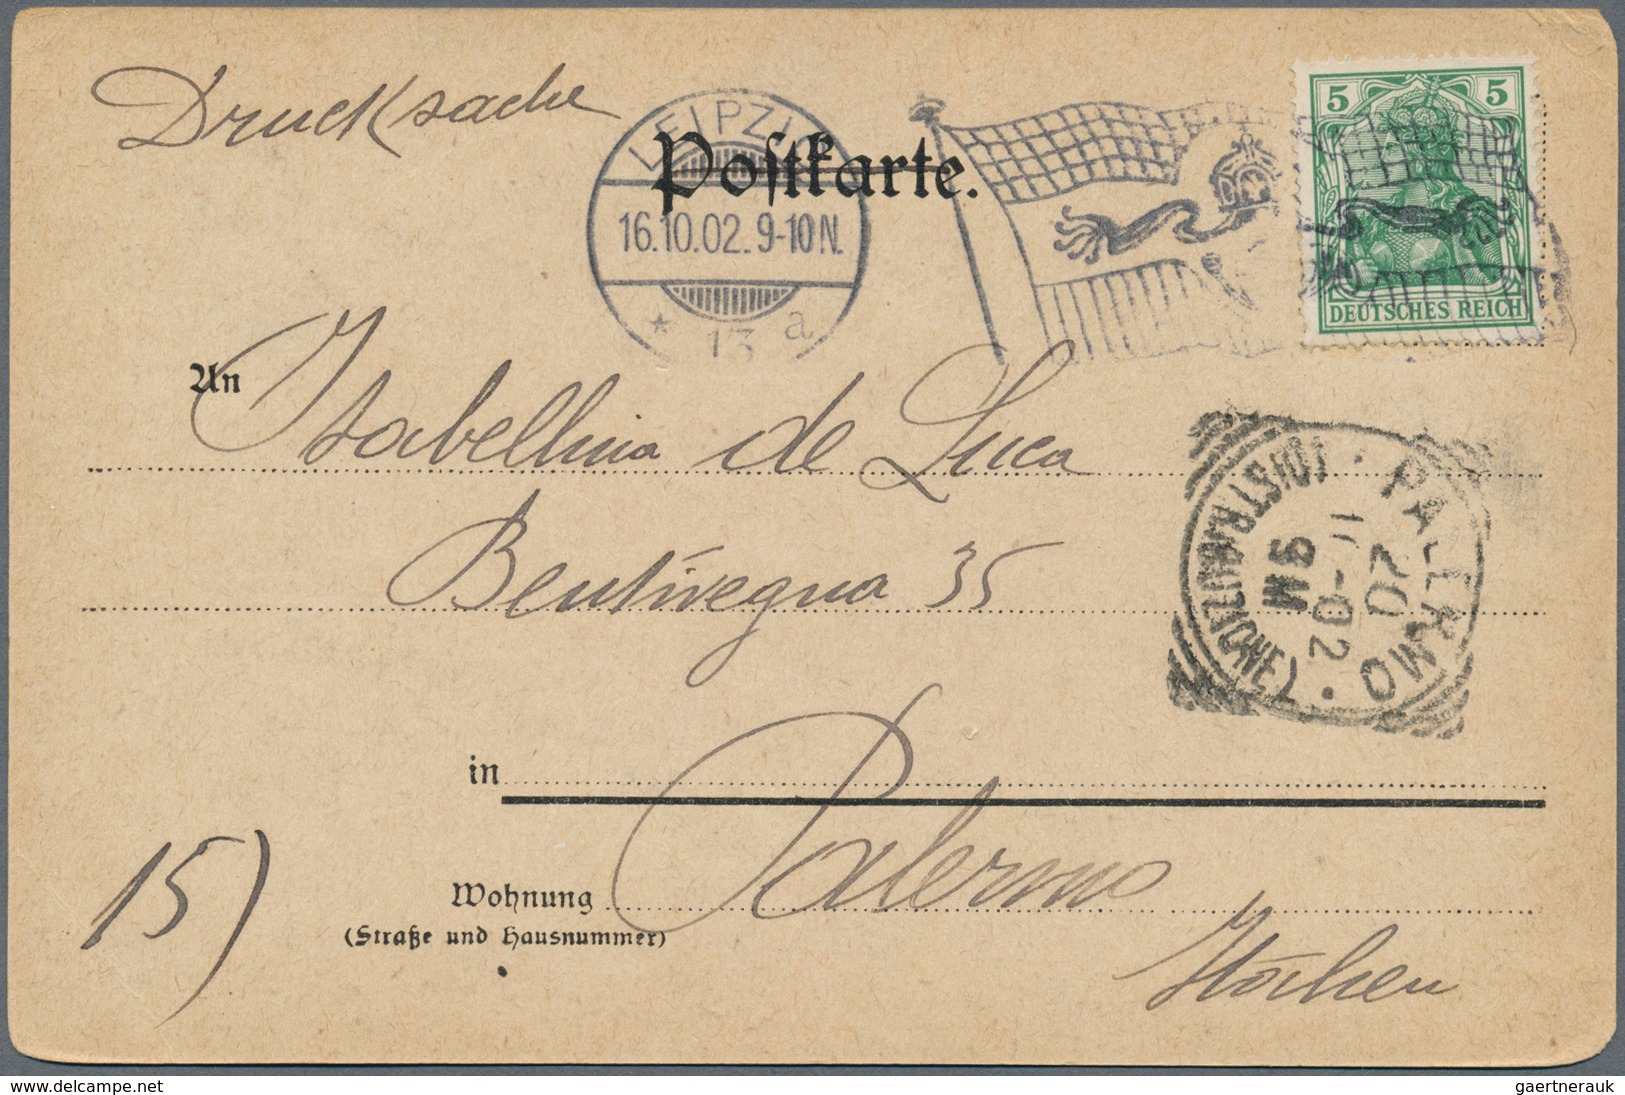 Drucksache
Postkarte.
LEIPZIG
16.10.02. 9-10 N.
* 13 a
5 5
DEUTSCHES REICH
An Isabellina de Luca
Bentivegna 35
PALERMO
20
10-02
9 M
(DISTRIBUZIONE)
in Palermo
Wohnung
(Straße und Hausnummer)
Italien
15)
www.delcampe.net
gaertnerauk